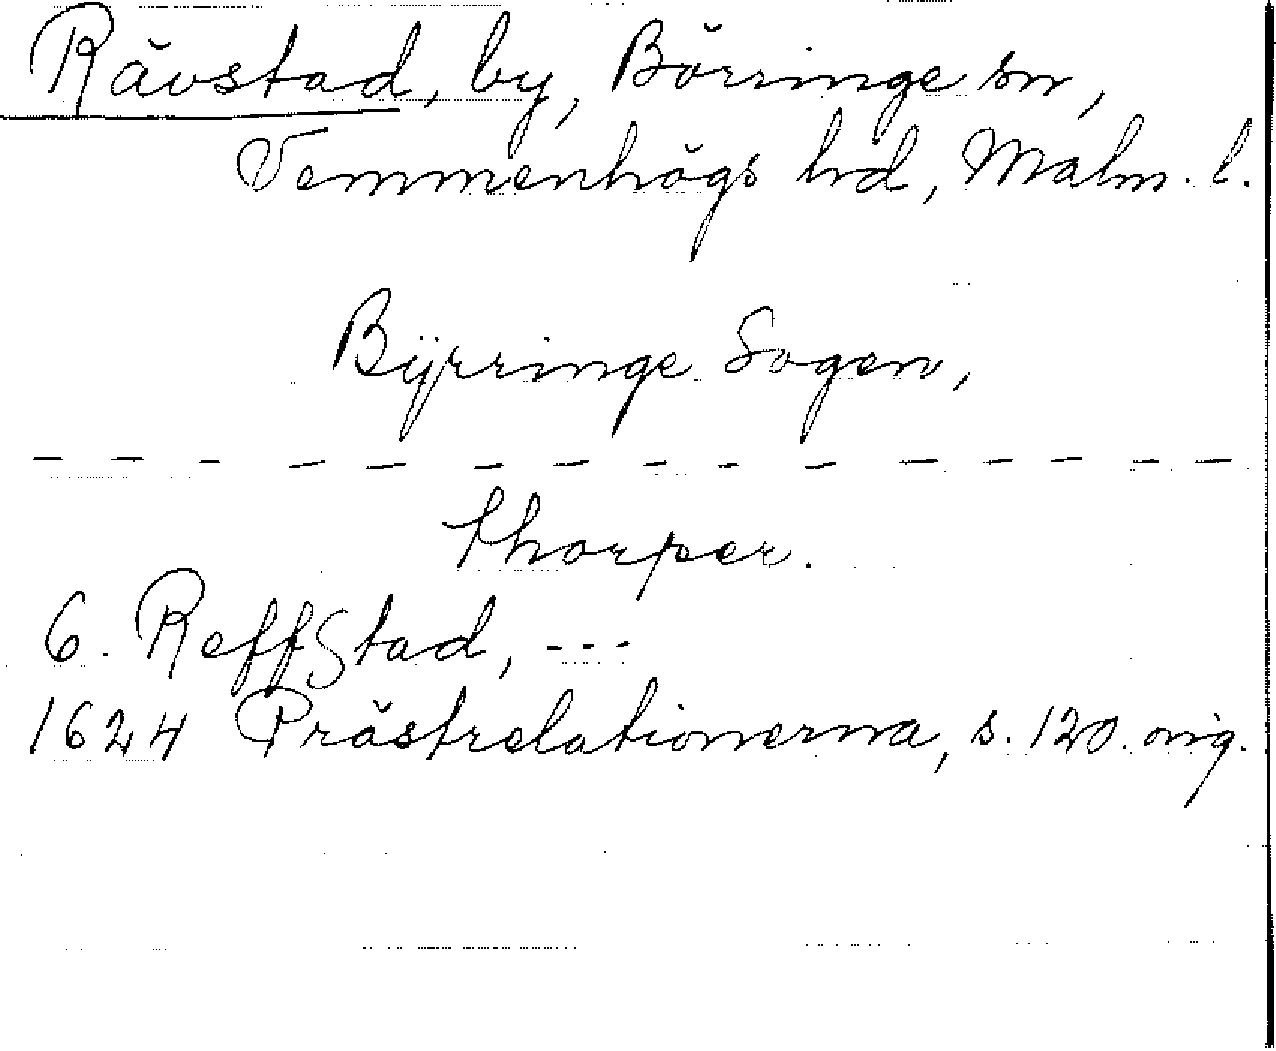 Rävstad, by, Börringe sn,
Vemmenhögs hd, Malm. l.
Byrringe Sogen,
- - - - - - - - - - - - - - -
thorper.
6. Reffstad, ---
1624 Prästrelationerna, s. 120. orig.